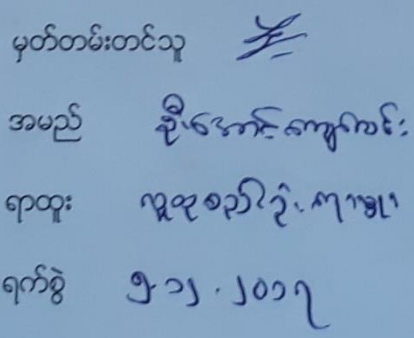 မှတ်တမ်းတင်သူ
အမည် ဦးအောင်ကျော်လင်း
ရာထူး လူထုစည်းရုံးရေးမှူး
ရက်စွဲ ၅.၁၂.၂၀၁၇